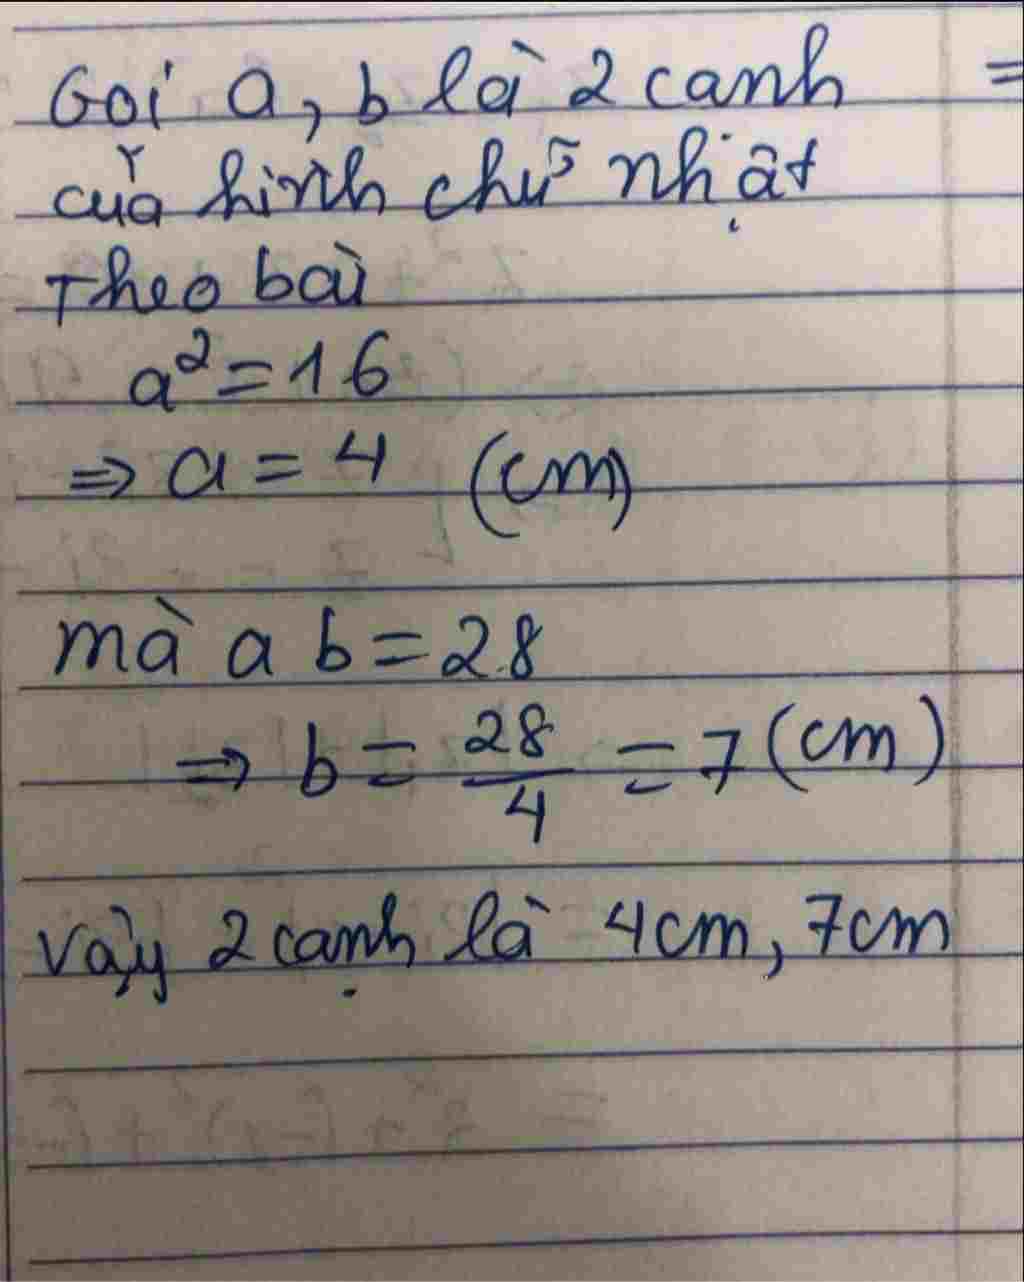 Gọi a, b là 2 canh =
của hình chữ nhật
Theo bài
a² = 16
⇒ a = 4 (cm)
mà a b = 28
⇒ b = 28/4 = 7 (cm)
Vậy 2 cạnh là 4cm, 7cm